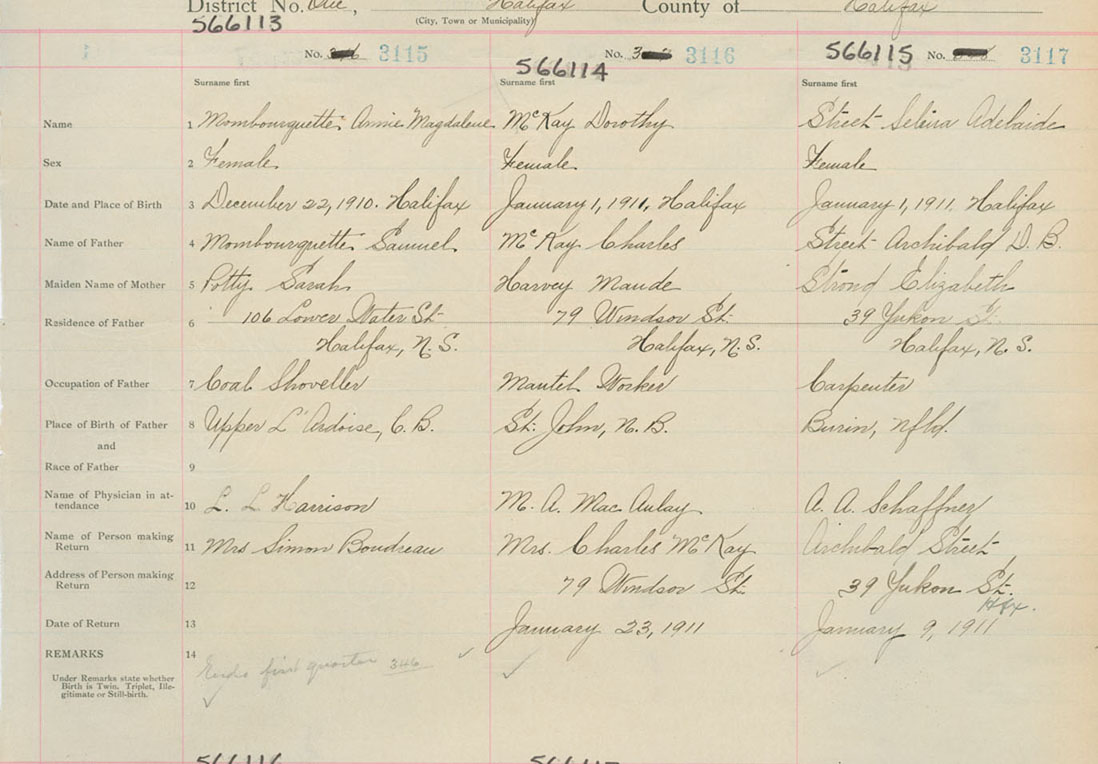 District No. One, Halifax County of Halifax
(City, Town or Municipality)
566113 566114 566115
No. 3115 No. 3116 No. 3117
Surname first Surname first Surname first
Name 1 Mombourquette Annie Magdalene McKay Dorothy Street Selina Adelaide
Sex 2 Female Female Female
Date and Place of Birth 3 December 22, 1910. Halifax January 1, 1911, Halifax January 1, 1911. Halifax
Name of Father 4 Mombourquette Samuel McKay Charles Street Archibald D. B.
Maiden Name of Mother 5 Potty Sarah Harvey Maude Strond Elizabeth
Residence of Father 6 106 Lower Water St. 79 Windsor St. 39 Yukon St.
Halifax, N.S. Halifax, N.S. Halifax, N.S.
Occupation of Father 7 Coal Shoveller Mantel Worker Carpenter
Place of Birth of Father 8 Upper L'Ardoise, C.B. St. John, N.B. Burin, Nfld.
and
Race of Father 9
Name of Physician in at-
tendance 10 L. L. Harrison M. A. MacAulay A. A. Schaffner
Name of Person making
Return 11 Mrs Simon Boudreau Mrs. Charles McKay Archibald Street
Address of Person making
Return 12 79 Windsor St. 39 Yukon St.
Hfx.
Date of Return 13 January 23, 1911 January 9, 1911
REMARKS 14
Ends first quarter 346
Under Remarks state whether
Birth is Twin, Triplet, Ille-
gitimate or Still-birth.
566116